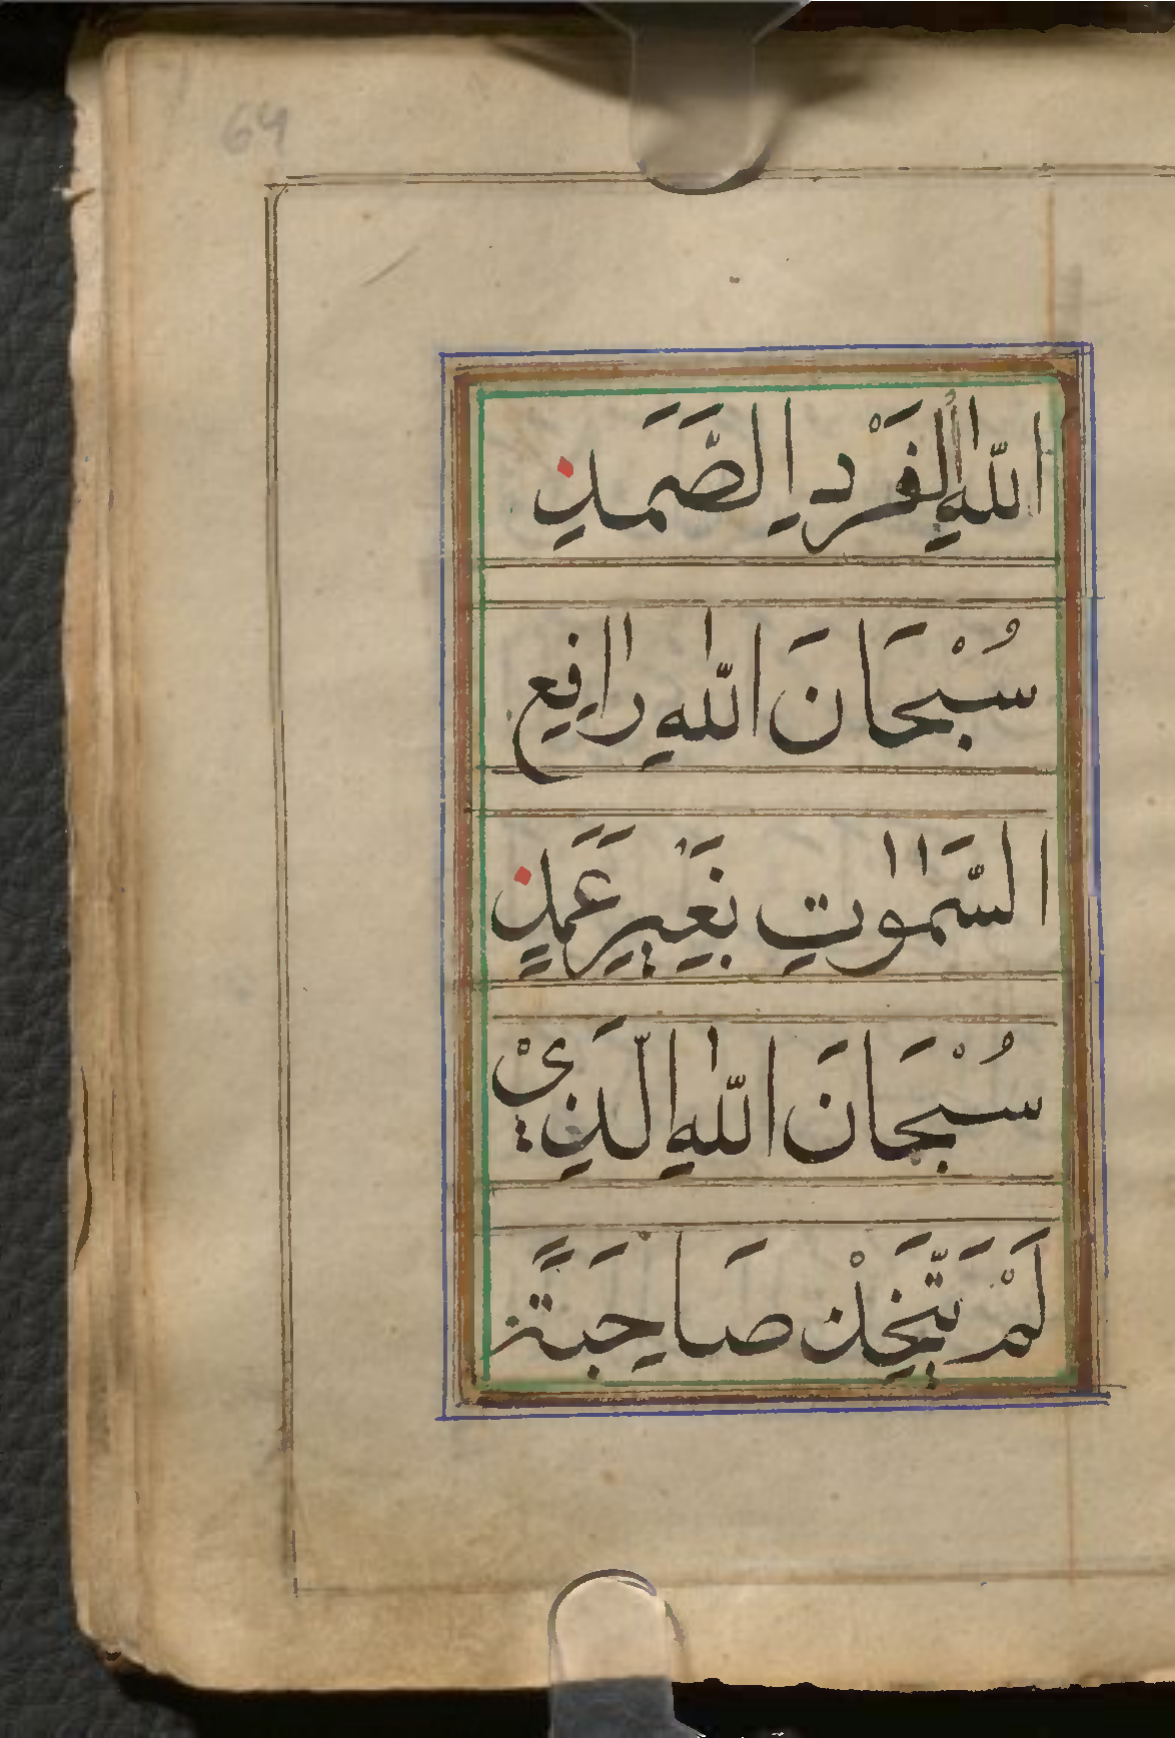 64
اللّٰهِ الْفَرْدِ الصَّمَدِ
سُبْحَانَ اللّٰهِ رَافِعِ
السَّمٰوٰتِ بِغَيْرِ عَمَدٍ
سُبْحَانَ اللّٰهِ الَّذِيْ
لَمْ يَتَّخِذْ صَاحِبَةً